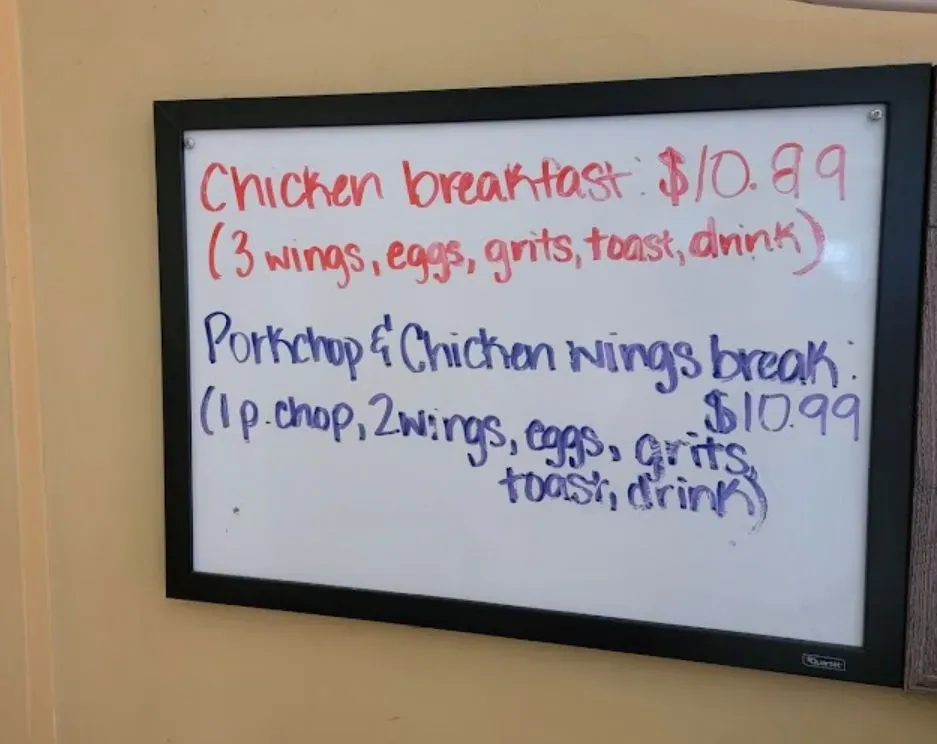 Chicken breakfast: $10.89
(3 wings, eggs, grits, toast, drink)
Porkchop & Chicken wings break:
$10.99
(1 p. chop, 2 wings, eggs, grits,
toast, drink)
Quartet